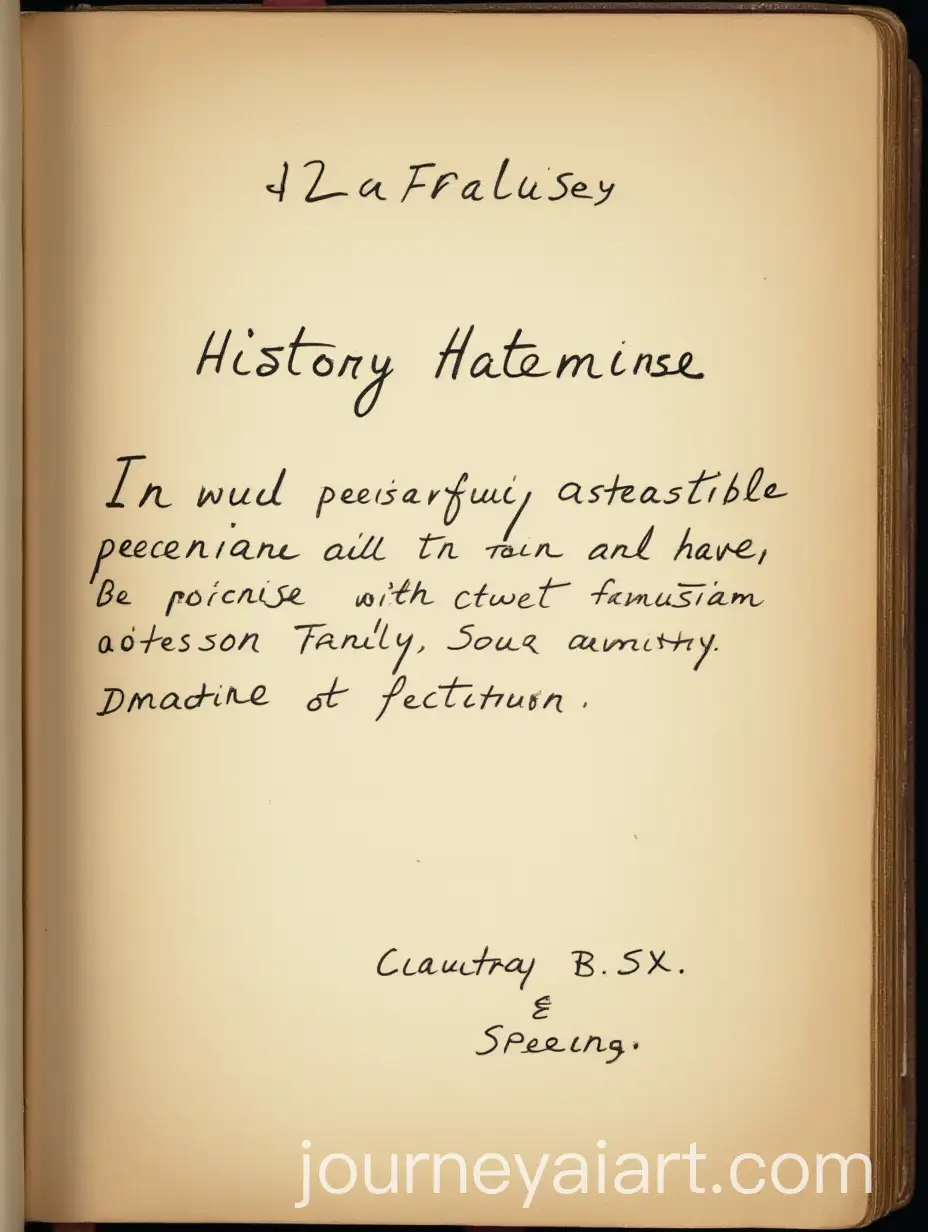 La Fraluisey
History Hateminse
In wud peeisarfuiy asteastible
peeceniane aill tn rain and have,
Be poicnise with ctwet famusiam
aotesson Family, Soua
Dmadine ot fectitiuon.
Clauctray B. SX.
&
Speeing.
journeyaiart.com